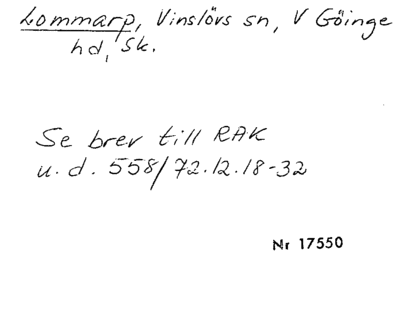 Lommarp, Vinslövs sn, V Göinge
hd, Sk.
Se brev till RAK
u.d. 558/72.12.18-32
Nr 17550